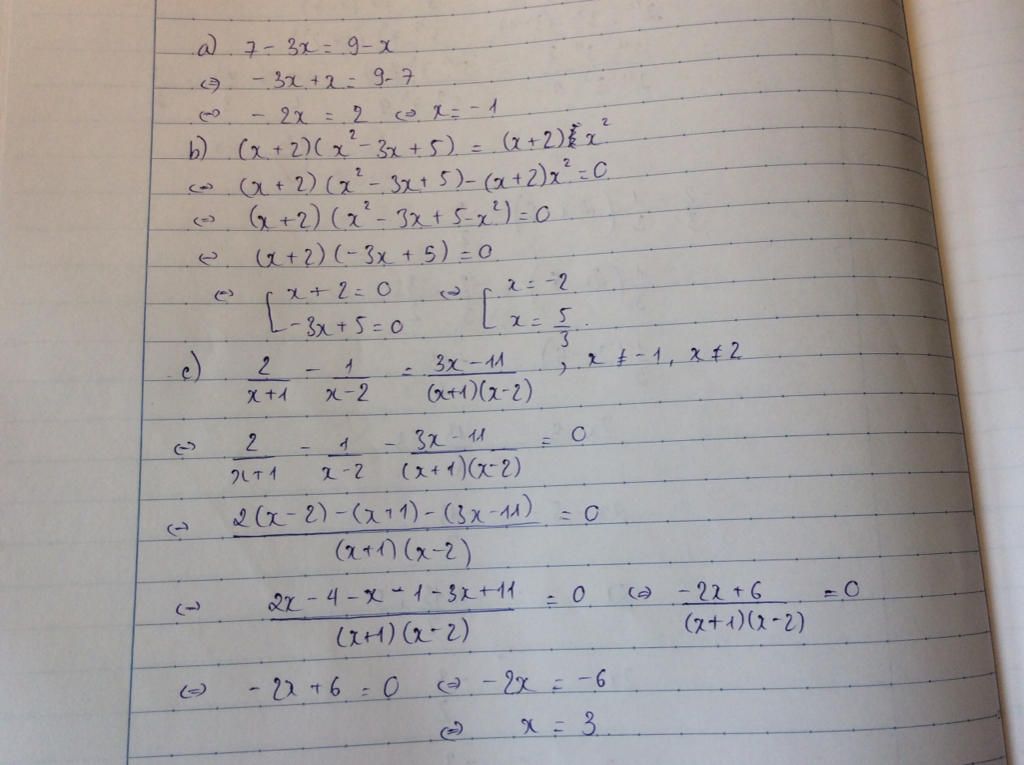 a) 7 - 3x = 9 - x
⇔ -3x + x = 9 - 7
⇔ -2x = 2 ⇔ x = -1
b) (x+2)(x² - 3x + 5) = (x+2)x²
⇔ (x+2)(x² - 3x + 5) - (x+2)x² = 0
⇔ (x+2)(x² - 3x + 5 - x²) = 0
⇔ (x+2)(-3x + 5) = 0
⇔ [ x + 2 = 0 ⇔ [ x = -2
-3x + 5 = 0 x = 5/3
c) 2/(x+1) - 1/(x-2) = (3x-11)/((x+1)(x-2)) , x ≠ -1, x ≠ 2
⇔ 2/(x+1) - 1/(x-2) - (3x-11)/((x+1)(x-2)) = 0
⇔ (2(x-2) - (x+1) - (3x-11))/((x+1)(x-2)) = 0
⇔ (2x - 4 - x - 1 - 3x + 11)/((x+1)(x-2)) = 0 ⇔ (-2x+6)/((x+1)(x-2)) = 0
⇔ -2x + 6 = 0 ⇔ -2x = -6
⇔ x = 3